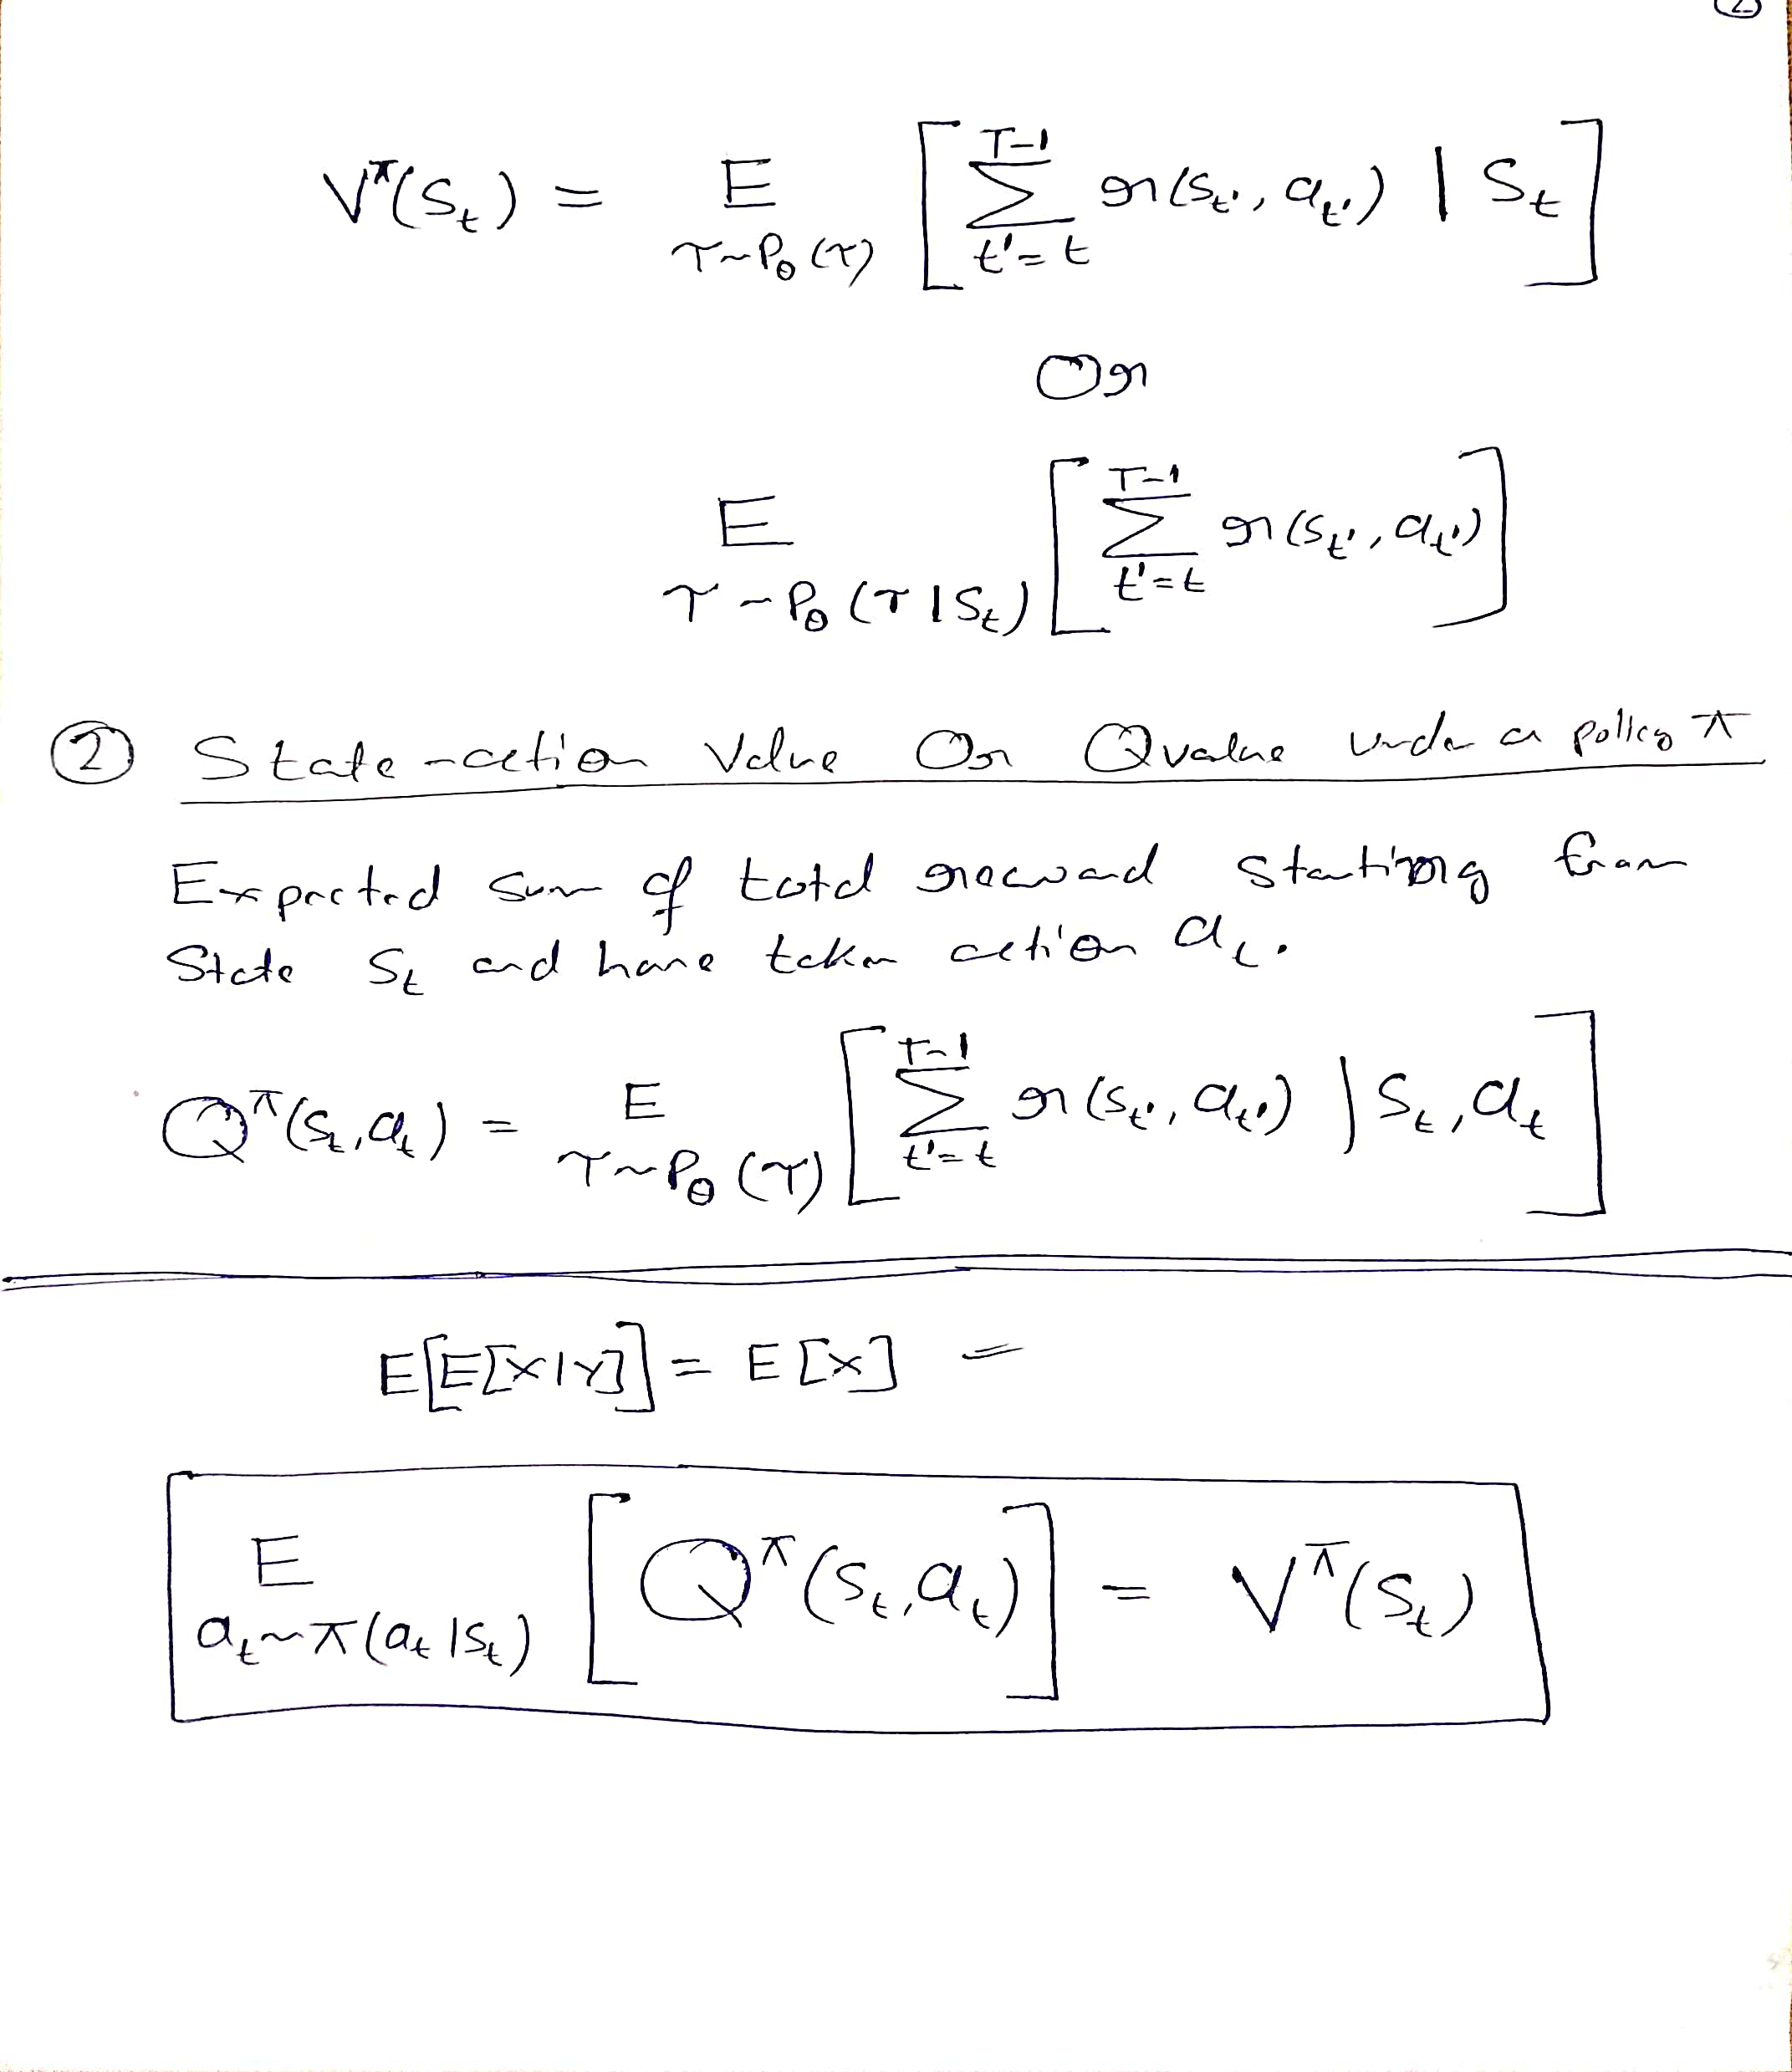 ②
V^π(S_t) = E_{τ~P_θ(τ)} [ Σ_{t'=t}^{T-1} r(S_t', a_t') | S_t ]
Or
E_{τ~P_θ(τ|S_t)} [ Σ_{t'=t}^{T-1} r(S_t', a_t') ]
② State-action Value Or Q value under a policy π
Expected sum of total reward starting from
State S_t and have taken action a_t.
Q^π(S_t, a_t) = E_{τ~P_θ(τ)} [ Σ_{t'=t}^{T-1} r(S_t', a_t') | S_t, a_t ]
E[E[X|Y]] = E[X] =
E_{a_t~π(a_t|S_t)} [ Q^π(S_t, a_t) ] = V^π(S_t)